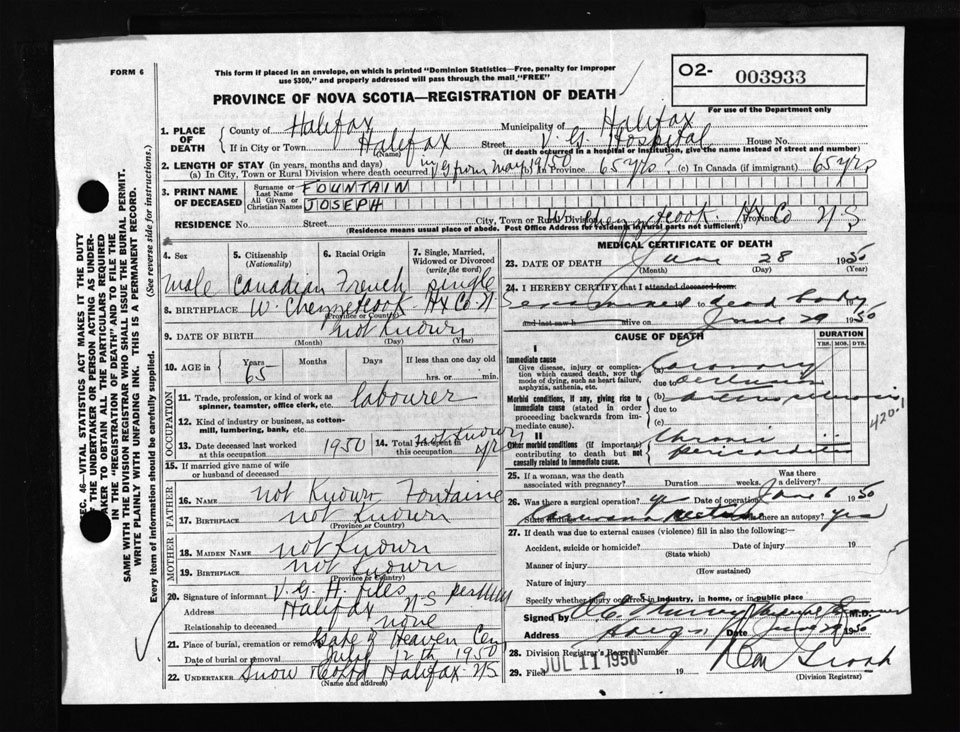 FORM 6
This form if placed in an envelope, on which is printed "Dominion Statistics—Free, penalty for improper
use $300," and properly addressed will pass through the mail "FREE"
O2- 003933
PROVINCE OF NOVA SCOTIA—REGISTRATION OF DEATH
For use of the Department only
1. PLACE OF DEATH
County of Halifax Municipality of Halifax
If in City or Town Halifax Street V.G. Hospital House No.
(Name) (If death occurred in a hospital or institution, give the name instead of street and number)
2. LENGTH OF STAY (in years, months and days)
(a) In City, Town or Rural Division where death occurred in V G from May 19/50 (b) In Province 65 yrs? (c) In Canada (if immigrant) 65 yrs
3. PRINT NAME OF DECEASED
Surname or Last Name FOUNTAIN
All Given or Christian Names JOSEPH
RESIDENCE No. Street City, Town or Rural Division W. Chezzetcook Hx Co Province N S
(Residence means usual place of abode. Post Office Address for residents in rural parts not sufficient)
4. Sex
5. Citizenship (Nationality)
6. Racial Origin
7. Single, Married, Widowed or Divorced (write the word)
male Canadian French single
8. BIRTHPLACE W. Chezzetcook Hx Co N.
(Province or Country)
9. DATE OF BIRTH not known
(Month) (Day) (Year)
10. AGE in Years Months Days If less than one day old
65 hrs. or min.
OCCUPATION
11. Trade, profession, or kind of work as spinner, teamster, office clerk, etc. labourer
12. Kind of industry or business, as cotton-mill, lumbering, bank, etc.
13. Date deceased last worked at this occupation 1950
14. Total years spent in this occupation not known
15. If married give name of wife or husband of deceased
FATHER
16. NAME not known Fontaine
17. BIRTHPLACE not known
(Province or Country)
MOTHER
18. MAIDEN NAME not known
19. BIRTHPLACE not known
(Province or Country)
20. Signature of informant V. G. H. Files per
Address Halifax N S
Relationship to deceased none
21. Place of burial, cremation or removal Gate of Heaven Cem
Date of burial or removal July 12th 1950
22. UNDERTAKER Snow Co Ltd Halifax N S
(Name and address)
MEDICAL CERTIFICATE OF DEATH
23. DATE OF DEATH June 28 1950
(Month) (Day) (Year)
24. I HEREBY CERTIFY that I attended deceased from:
examined to dead body
and last saw h alive on June 29 1950
CAUSE OF DEATH
DURATION
YRS. MOS. DYS.
I
Immediate cause
Give disease, injury or complication which caused death, not the mode of dying, such as heart failure, asphyxia, asthenia, etc.
(a) Coronary
due to
Morbid conditions, if any, giving rise to immediate cause (stated in order proceeding backwards from immediate cause).
(b) arteriosclerosis
due to
(c)
420-1
II
Other morbid conditions (if important) contributing to death but not causally related to immediate cause.
Chronic
pericarditis
25. If a woman, was the death associated with pregnancy? Duration weeks. Was there a delivery?
26. Was there a surgical operation? yes Date of operation June 6 1950
State findings Carcinoma Was there an autopsy? yes
27. If death was due to external causes (violence) fill in also the following:—
Accident, suicide or homicide? Date of injury 19
(State which)
Manner of injury
(How sustained)
Nature of injury
Specify whether injury occurred in industry, in home, or in public place
Signed by Murray M.D.
Address Date June 29 1950
28. Division Registrar's Record Number
29. Filed JUL 11 1950 19
(Division Registrar)
SEC. 46—VITAL STATISTICS ACT MAKES IT THE DUTY
OF THE UNDERTAKER OR PERSON ACTING AS UNDER-
TAKER TO OBTAIN ALL THE PARTICULARS REQUIRED
IN THE "REGISTRATION OF DEATH" AND TO FILE THE
SAME WITH THE DIVISION REGISTRAR WHO SHALL ISSUE THE BURIAL PERMIT.
WRITE PLAINLY WITH UNFADING INK. THIS IS A PERMANENT RECORD.
Every item of information should be carefully supplied.
(See reverse side for instructions.)